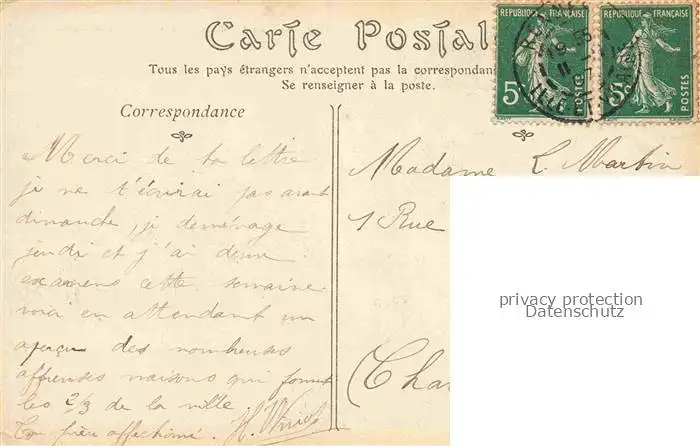 Carte Postale
Tous les pays étrangers n'acceptent pas la correspondan
Se renseigner à la poste.
REPUBLIQUE FRANÇAISE
5c
POSTES
REPUBLIQUE FRANÇAISE
5c
POSTES
ILLE ET
Correspondance
Merci de ta lettre
je ne t'écrirai pas avant
dimanche, je déménage
jeudi et j'ai deux
examens cette semaine
voici en attendant un
aperçu des nombreuses
affreuses maisons qui forment
les 2/3 de la ville
Ton frère affectionné. H.
Madame L. Martin
1 Rue
(Cha
privacy protection
Datenschutz